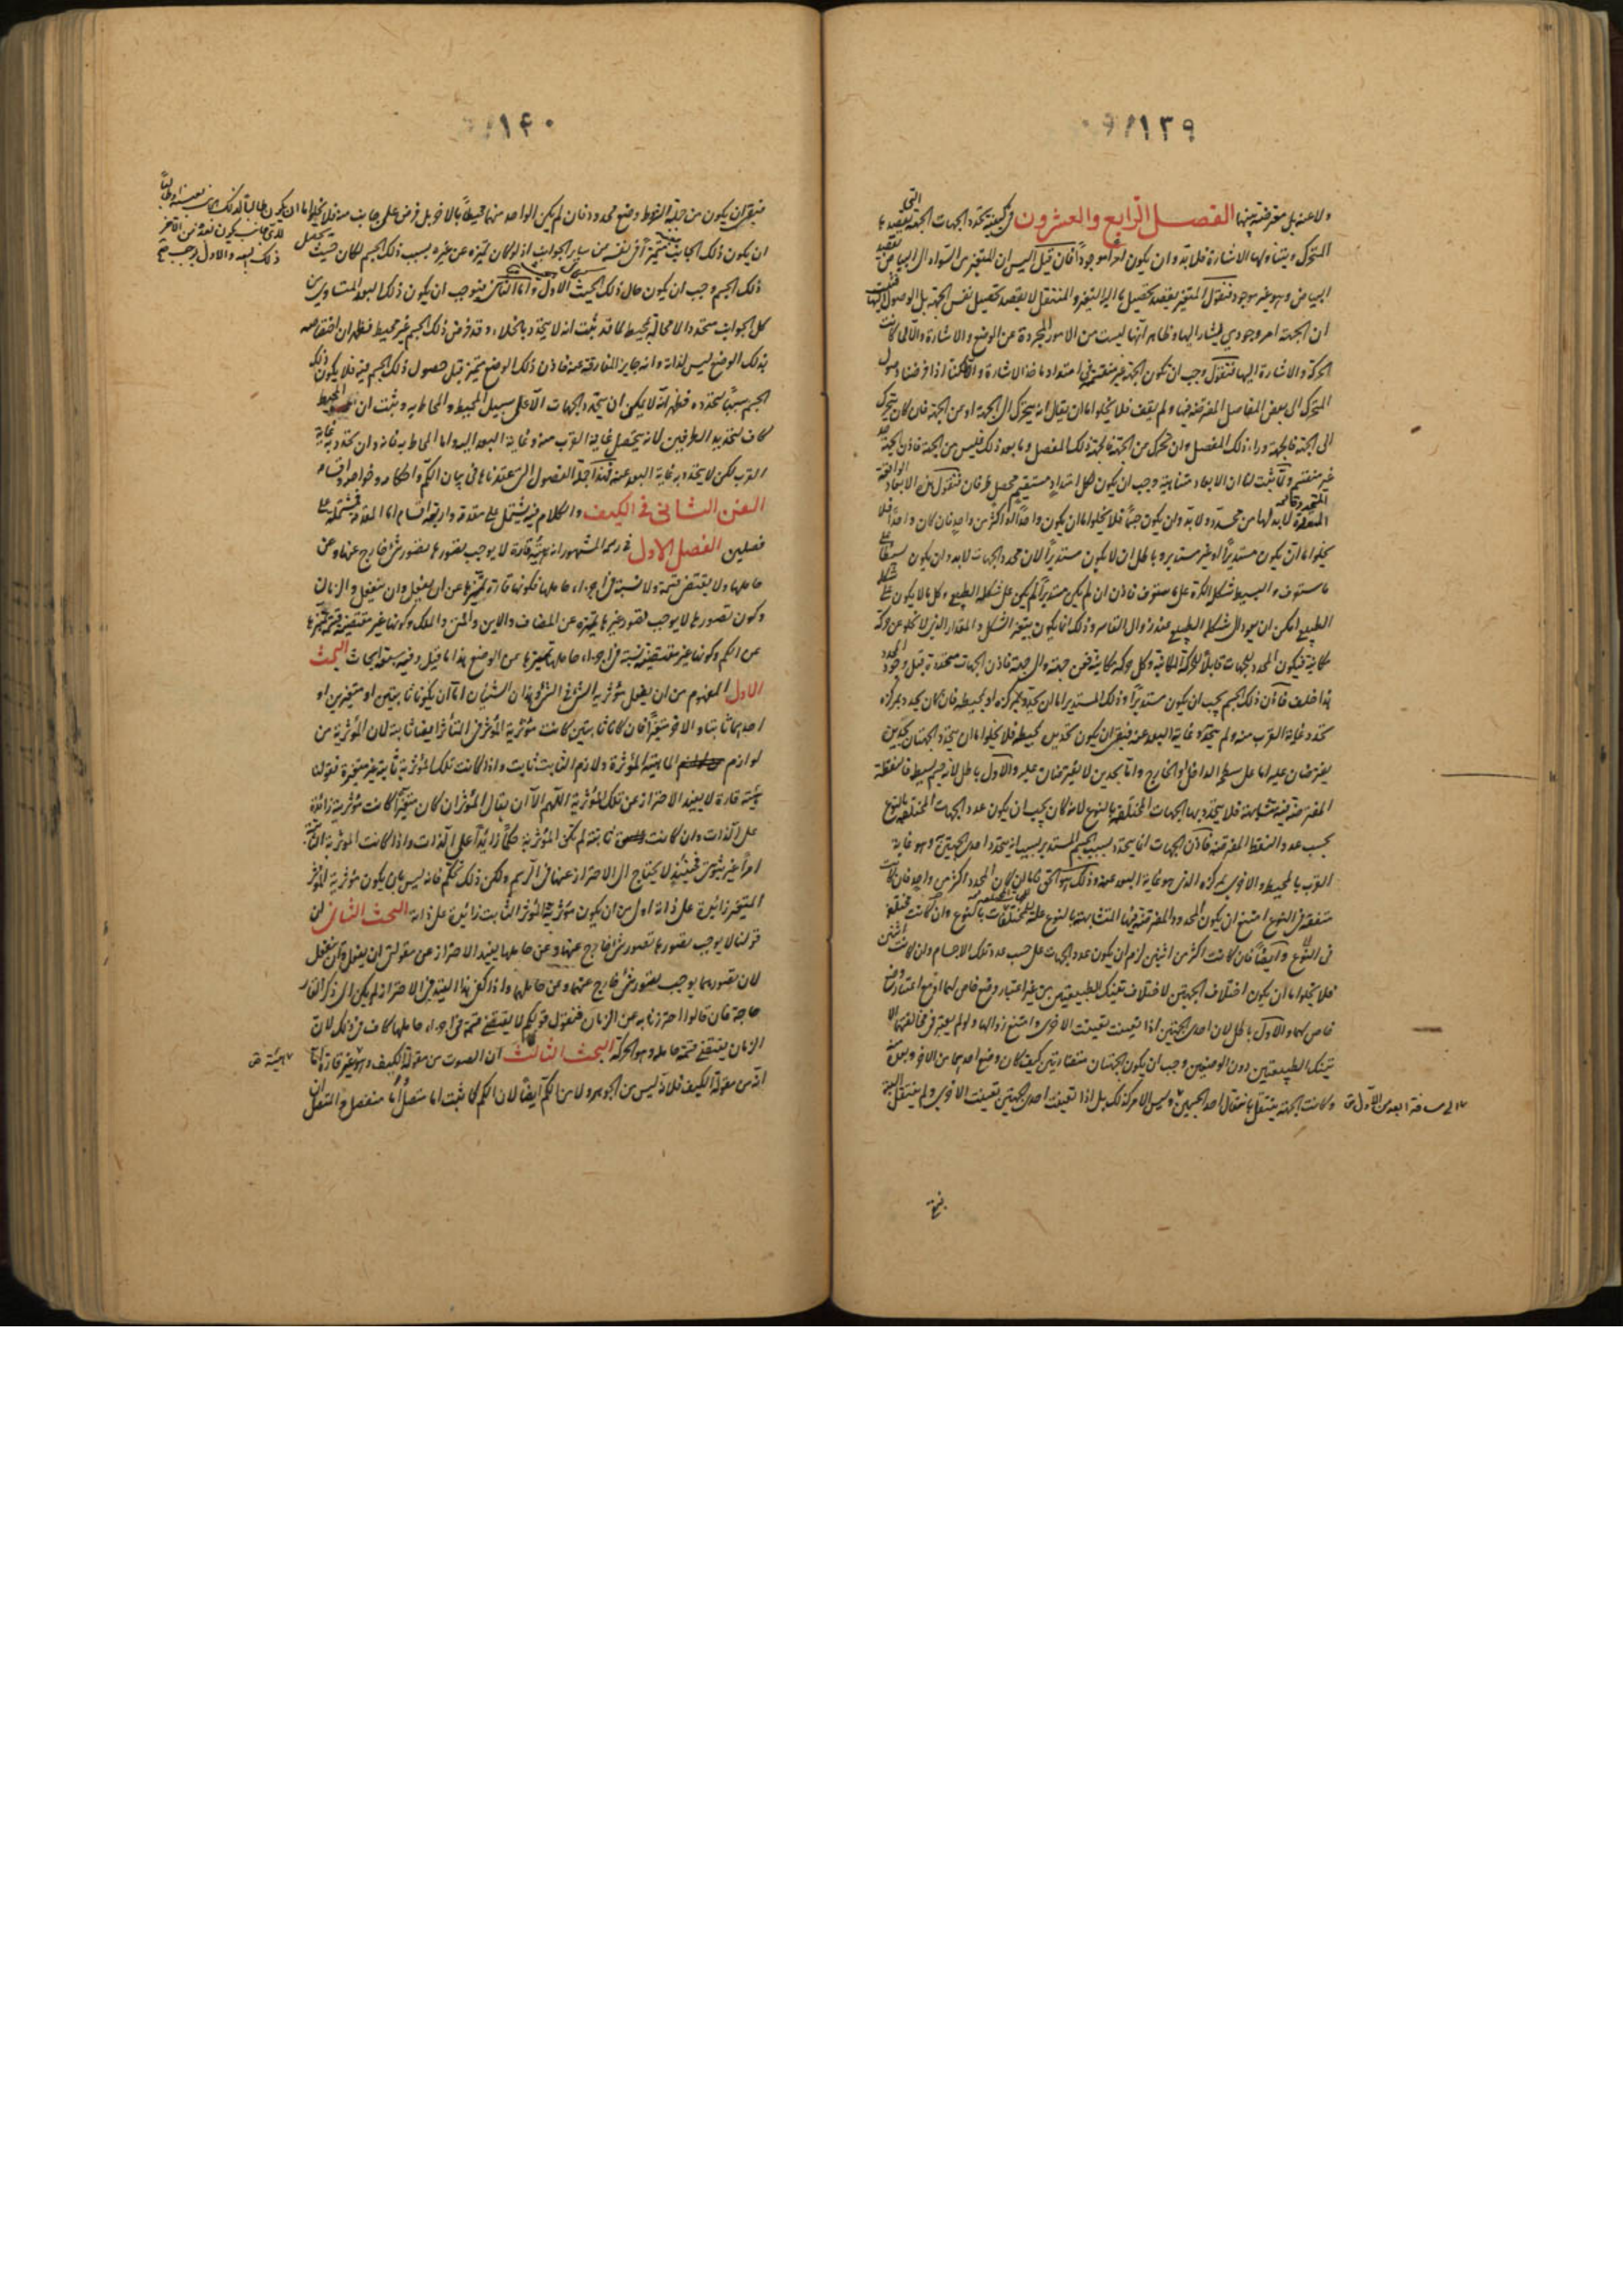 ١٣٩
ولا عنه بل مفترضة بينها الفصل الرابع والعشرون في كيفية تحدد الجهات الجهة التي يقصدها
المتحرك ويتناولها الاشارة فلا بد وان يكون امرا موجوداً فان قيل اليس ان المتغير من السواد الى البياض يقصد
البياض وهو غير موجود فنقول المتغير يقصد تحصيل ما اليه التغير والمنتقل لا يقصد تحصيل نفس الجهة بل الوصول اليها فثبت
ان الجهة امر وجودي يشار اليها وظاهر انها ليست من الامور المجردة عن الوضع والاشارة والا لما كانت
الحركة والاشارة اليها فنقول وجب ان تكون الجهة غير منقسمة في امتداد ماخذ الاشارة والا لكنا اذا فرضنا وصول
المتحرك الى بعض المفاصل المفترضة فيها ولم يقف فلا يخلوا ما ان يقال انه يتحرك الى الجهة او من الجهة فان كان يتحرك
الى الجهة فالجهة وراء ذلك المفصل وان تحرك من الجهة فالجهة ذلك المفصل وما بعد ذلك فليس من الجهة فاذن الجهة
غير منقسمة ولما ثبت لنا ان الابعاد متناهية وجب ان يكون لكل امتداد مستقيم محصل طرفان فنقول هذه الابعاد
لا بد لها من محدد ولا بد وان يكون جسماً فلا يخلوا ما ان يكون واحداً او اكثر من واحد فان كان واحداً فلا
يخلوا ما ان يكون مستديراً او غير مستدير وباطل ان لا يكون مستديراً لان محدد الجهات لا بد وان يكون بسيطاً على
ما ستعرف والبسيط شكله الكرة على ما ستعرف فاذن ان لم يكن مستديراً لم يكن على شكله الطبيعي وكل ما لا يكون على شكله
الطبيعي امكن ان يعود الى شكله الطبيعي عند زوال القاسر وذلك انما يكون بتغير الشكل والمقدار الذين لا يخلو عن حركة
مكانية فيكون المحدد للجهات قابلاً للحركة المكانية وكل حركة مكانية فمن جهة والى جهة فاذن الجهات متحددة قبل وجود المحدد
هذا خلف فاذن ذلك الجسم يجب ان يكون مستديراً وذلك المستدير اما ان يحدد بمركزه او بمحيطه فان كان يحدد بمركزه
تحدد غاية القرب منه ولم يتحدد غاية البعد عنه فبقي ان يكون تحديده بمحيطه فلا يخلوا ما ان يتحدد الجهتان بحدين
يفترضان عليه اما على سطحه الداخل او الخارج واما بحدين لا يفترضان عليه والاول باطل لانه جسم بسيط فالنقطة
المفترضة فيه متشابهة فلا يتحدد بها الجهات المختلفة بالنوع لانه كان يجب ان يكون عدد الجهات المختلفة بالنوع
بحسب عدد النقط المفترضة فاذن الجهات انما يتحدد بسبب الجسم المستدير بسبب انه يتحدد احدى الجهتين وهو غاية
القرب بالمحيط والاخرى بمركزه الذي هو غاية البعد عنه وذلك هو الحق واما ان كان المحدد اكثر من واحد فان كانت
متفقة في النوع امتنع ان يكون الحدود المفترضة فيها المتشابهة بالنوع علة للمختلفات بالنوع وان كانت مختلفة
في النوع وايضاً فان كانت اكثر من اثنين لزم ان يكون عدد الجهات على حسب عدد تلك الاجسام وان كانت اثنتين
فلا يخلوا ما ان يكون اختلاف الجهتين لاختلاف تينك الطبيعتين من غير اعتبار وضع خاص لهما او مع اعتبار وضع
خاص لهما والاول باطل لان احدى الجهتين اذا تعينت تعينت الاخرى وامتنع زوالها ولو لم يعتبر في مخالفتهما الا
تينك الطبيعتين دون الوضعين وجب ان يكون الجهتان متضادتين كيف كان وضع احدهما من الاخر وبعده منه
وكانت الجهة ينتقل بانتقال احد الجسمين وليس الامر كذلك بل اذا تعينت احدى الجهتين تعينت الاخرى ولم ينتقل البتة
على مسافة ابعد من الاول
فبقي
١٤٠
فبقي ان يكون من جملة الشروط وضع محدود فان لم يكن الواحد منهما محيطاً بالاخر بل فرض على جانب منه فلا يخلوا اما ان يكون
ان يكون ذلك الجانب متميزاً في نفسه من سائر الجوانب اذ لو كان تميزه عن غيره بسبب ذلك الجسم لكان حيث يحصل
ذلك الجسم وجب ان يكون حال ذلك الحيث الاول واما الثاني فيوجب ان يكون ذلك البعد المتساوي من
كل الجوانب متحدداً لا محالة بمحيط لما قد ثبت انه لا يتحدد بالخلاء وقد فرض ذلك الجسم غير محيط فظهر ان اختصاصه
بذلك الوضع ليس لذاته وانه جايز المفارقة عنه فاذن ذلك الوضع متميز قبل حصول ذلك الجسم فيه فلا يكون ذلك
الجسم سبباً لتحدده فظهر انه لا يمكن ان يتحدد الجهات الا على سبيل المحيط والمحاط به وثبت ان المحيط
كاف لتحديد الطرفين لانه يتحصل غاية القرب منه وغاية البعد اليه واما المحاط به فانه وان تحدد به غاية
القرب لكن لا يتحدد به غاية البعد عنه فهذا جملة الفصول التي عقدناها في بيان الكم واحكامه وخواصه واقسامه
الفن الثاني في الكيف والكلام فيه يشتمل على مقدمة واربعة اقسام اما المقدمة فمشتملة على
فصلين الفصل الاول في رسمه المشهور انه هيئة قارة لا يوجب تصورها تصور شئ خارج عنها وعن
حاملها ولا يقتضي قسمة ولا نسبة في اجزاء حاملها فكونها قارة يميزها عن ان يفعل وان ينفعل والزمان
وكون تصورها لا يوجب تصور غيرها يميزه عن المضاف والاين والمتى والملك وكونها غير مقتضية قسمة يميزها
عن الكم وكونها غير مقتضية نسبة في اجزاء حاملها يميزها من الوضع هذا ما قيل وفيه سبعة ابحاث البحث
الاول المفهوم من ان يفعل مؤثرية الشئ في الشئ وهذان الشيئان اما ان يكونا ثابتين او متغيرين او
احدهما ثابتا والاخر متغيراً فان كانا ثابتين كانت مؤثرية المؤثر في المتأثر ايضا ثابتة لان المؤثرية من
لوازم الماهية المؤثرة ولازم الثابت ثابت واذا كانت تلك المؤثرية ثابتة غير متغيرة فقولنا
هيئة قارة لا يفيد الاحتراز عن تلك المؤثرية اللهم الا ان يقال المؤثر ان كان متغيراً كانت مؤثريته زائدة
على الذات وان كانت ثابتة لم يكن المؤثرية حكماً زائداً على الذات واذا كانت المؤثرية الثابتة
امراً غير ثبوتي فحينئذ لا يحتاج الى الاحتراز عنها في الرسم ولكن ذلك تحكم فانه ليس بان يكون مؤثرية المؤثر
المتغير زائدة على ذاته اولى من ان يكون مؤثرية المؤثر الثابت زائدة على ذاته البحث الثاني ان
قولنا لا يوجب تصورها تصور شئ خارج عنها وعن حاملها يفيد الاحتراز عن مقولتي ان يفعل وان ينفعل
لان تصورهما يوجب تصور شئ خارج عنهما وعن حاملهما واذا كفى هذا القيد في الاحتراز لم يكن الى ذكر القار
حاجة فان قالوا احترزنا به عن الزمان فنقول قولكم لا يقتضي قسمة في اجزاء حاملها كاف في ذلك لان
الزمان يقتضي قسمة حامله وهو الحركة البحث الثالث ان الصوت من مقولة الكيف وهو غير قارة اما
انه من مقولة الكيف فلانه ليس من الجوهر ولا من الكم ايضاً لان الكم كما ثبت اما متصل او منفصل والمتصل
هيئة